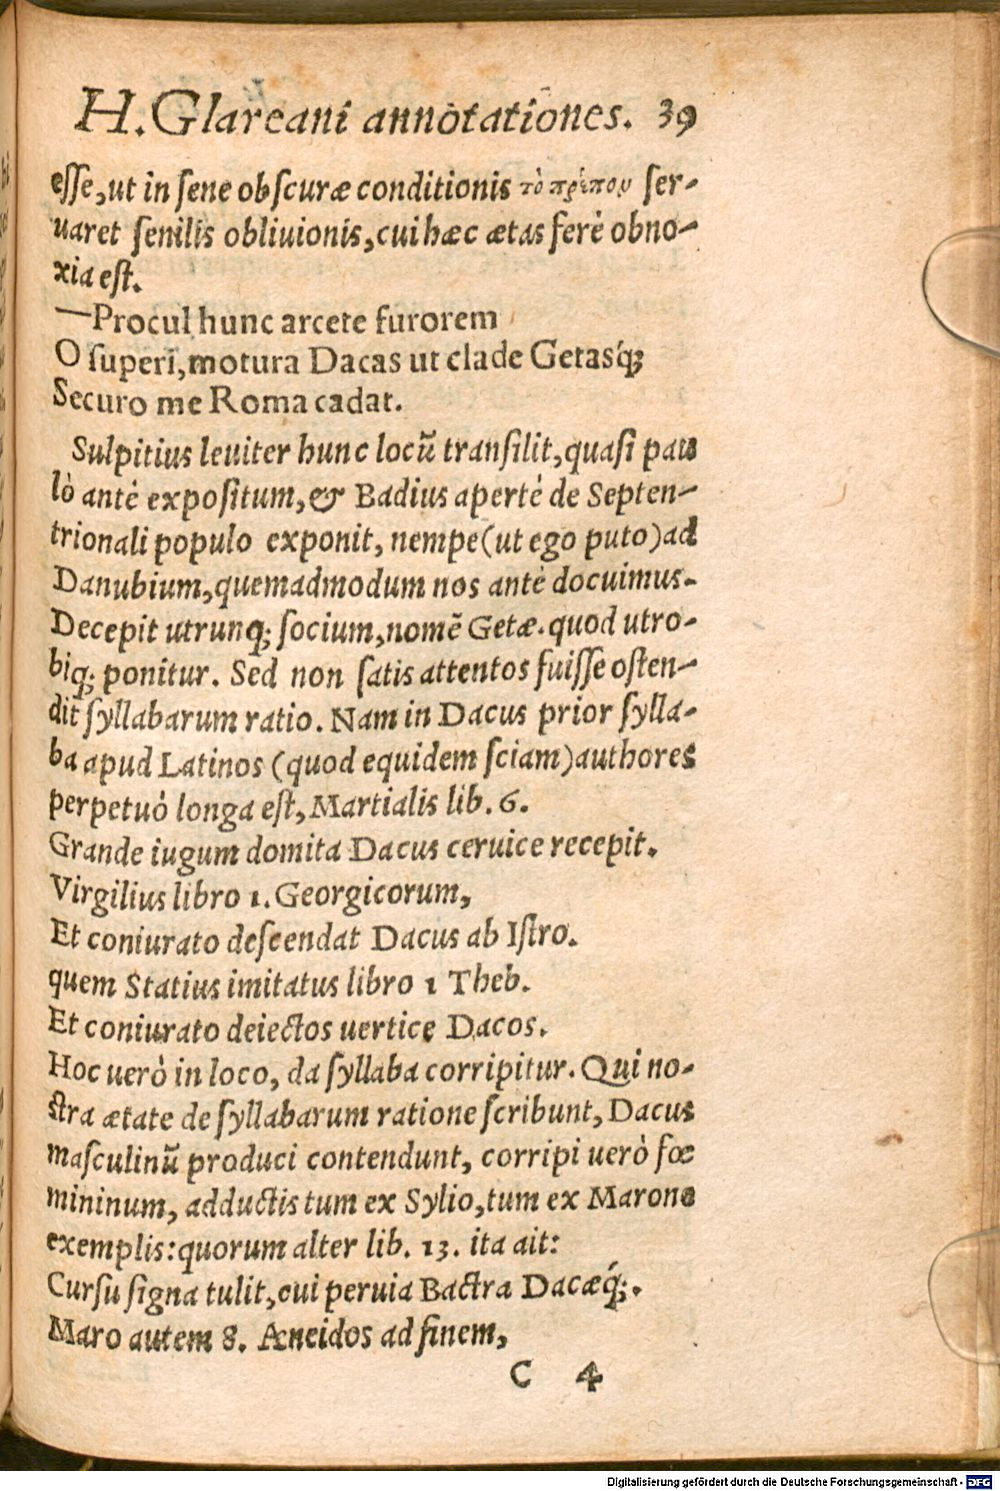 H. Glareani annotationes. 39
esse, ut in sene obscuræ conditionis τὸ πρέπον ser-
uaret senilis obliuionis, cui hæc ætas ferè obno-
xia est.
—Procul hunc arcete furorem
O superi, motura Dacas ut clade Getasq́;
Securo me Roma cadat.
Sulpitius leuiter hunc locũ transilit, quasi pau
lò antè expositum, & Badius apertè de Septen-
trionali populo exponit, nempe (ut ego puto) ad
Danubium, quemadmodum nos antè docuimus.
Decepit utrunq; socium, nomẽ Getæ. quod utro-
biq; ponitur. Sed non satis attentos fuisse osten-
dit syllabarum ratio. Nam in Dacus prior sylla-
ba apud Latinos (quod equidem sciam) authores
perpetuò longa est, Martialis lib. 6.
Grande iugum domita Dacus ceruice recepit.
Virgilius libro 1. Georgicorum,
Et coniurato descendat Dacus ab Istro.
quem Statius imitatus libro 1 Theb.
Et coniurato deiectos uertice Dacos.
Hoc uerò in loco, da syllaba corripitur. Qui no-
stra ætate de syllabarum ratione scribunt, Dacus
masculinũ produci contendunt, corripi uerò fœ
mininum, adductis tum ex Sylio, tum ex Marone
exemplis: quorum alter lib. 13. ita ait:
Cursu signa tulit, cui peruia Bactra Dacæq́;.
Maro autem 8. Æneidos ad finem,
C 4
Digitalisierung gefördert durch die Deutsche Forschungsgemeinschaft - DFG